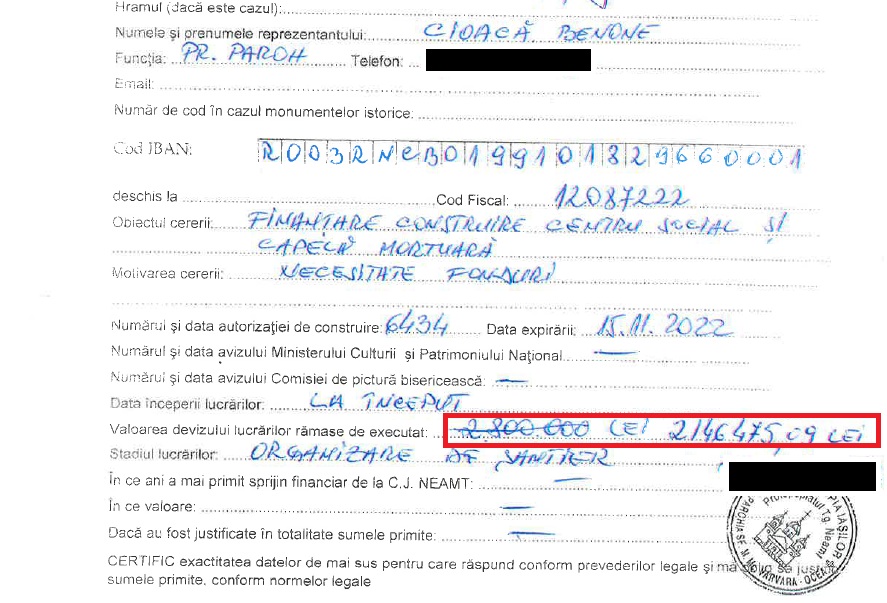 Hramul (dacă este cazul):
Numele și prenumele reprezentantului: CIOACĂ BENONE
Funcția: PR. PAROH Telefon:
Email:
Număr de cod în cazul monumentelor istorice:
Cod IBAN: RO03RNCB0199101829660001
deschis la Cod Fiscal: 12087222
Obiectul cererii: FINANȚARE CONSTRUIRE CENTRU SOCIAL ȘI
CAPELĂ MORTUARĂ
Motivarea cererii: NECESITATE FONDURI
Numărul și data autorizației de construire: 6434 Data expirării: 15.11.2022
Numărul și data avizului Ministerului Culturii și Patrimoniului Național —
Numărul și data avizului Comisiei de pictură bisericească: —
Data începerii lucrărilor: LA ÎNCEPUT
Valoarea devizului lucrărilor rămase de executat: 2.800.000 LEI 2146475,09 LEI
Stadiul lucrărilor: ORGANIZARE DE ȘANTIER
În ce ani a mai primit sprijin financiar de la C.J. NEAMT: —
În ce valoare: —
Dacă au fost justificate în totalitate sumele primite: —
CERTIFIC exactitatea datelor de mai sus pentru care răspund conform prevederilor legale și mă
sumele primite, conform normelor legale
Tg. Neamț
IAȘILOR
VARVARA - OCEA